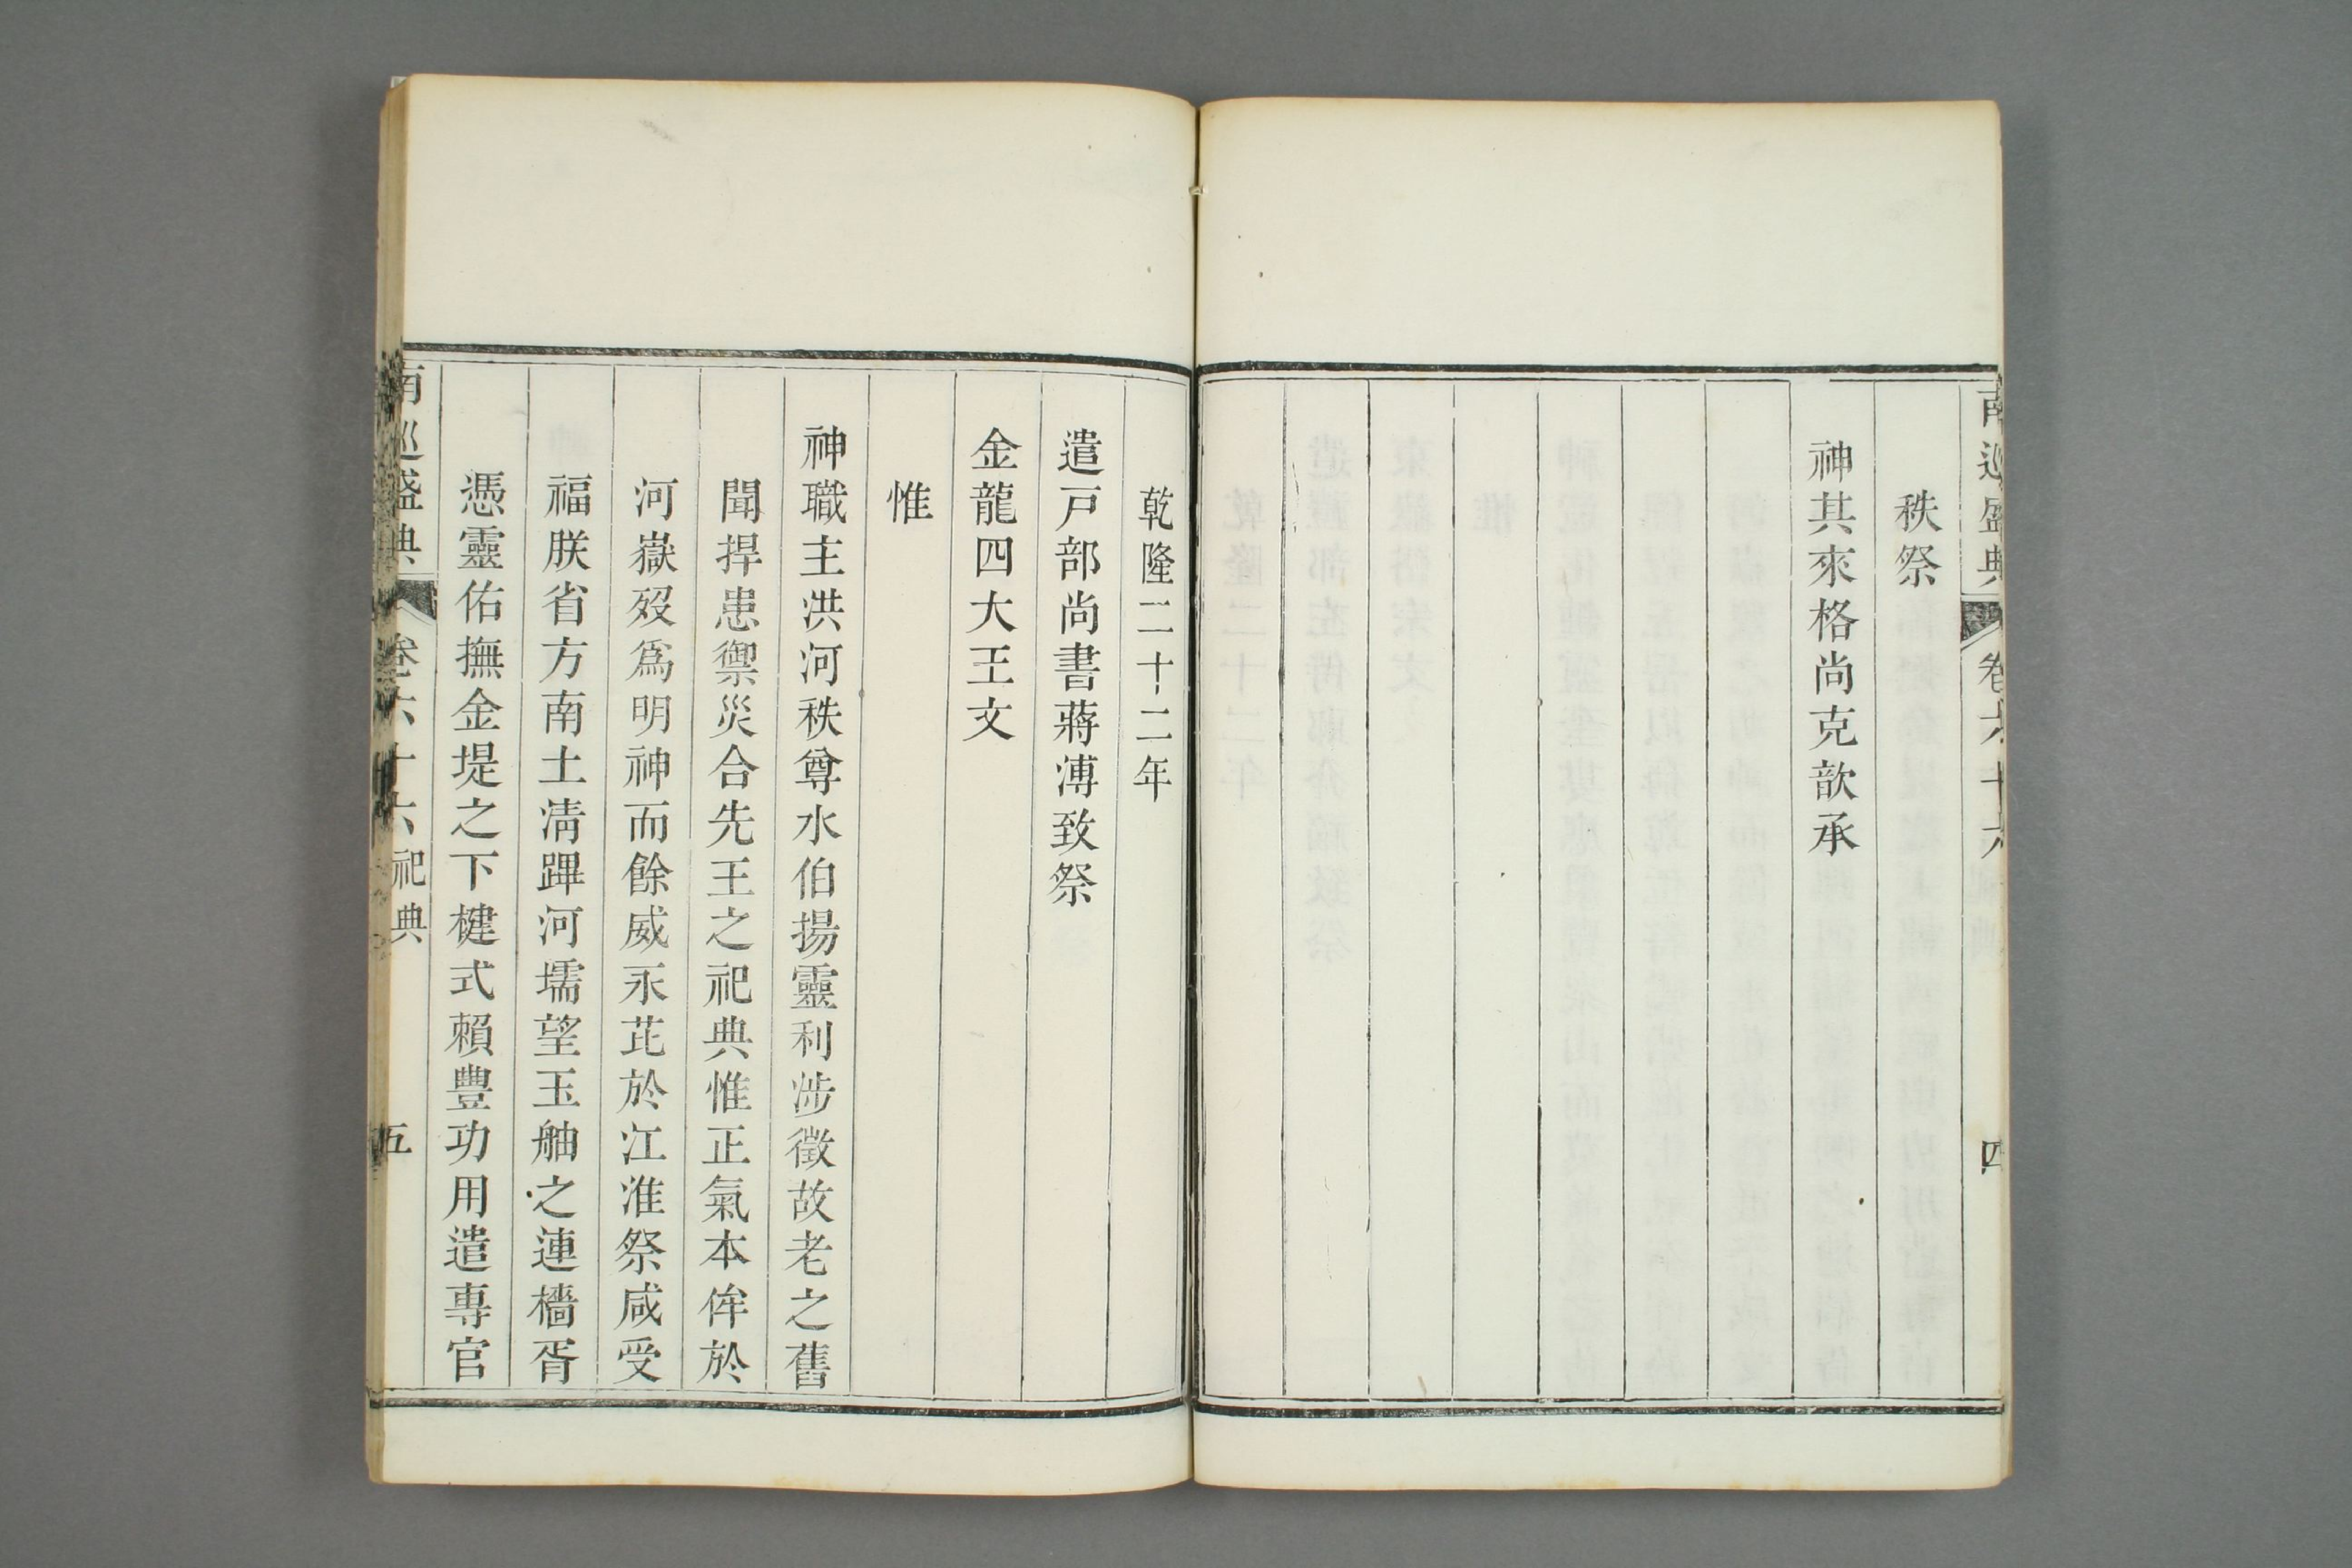 南巡盛典 卷六十六 四
秩祭
神其來格尚克歆承
乾隆二十二年
遣戸部尚書蔣溥致祭
金龍四大王文
惟
神職主洪河秩尊水伯揚靈利涉徵故老之舊
聞捍患禦災合先王之祀典惟正氣本侔於
河嶽歿爲明神而餘威永芘於江淮祭咸受
福朕省方南土清蹕河壖望玉舳之連檣胥
憑靈佑撫金堤之下楗式賴豐功用遣專官
南巡盛典 卷六十六 祀典 五